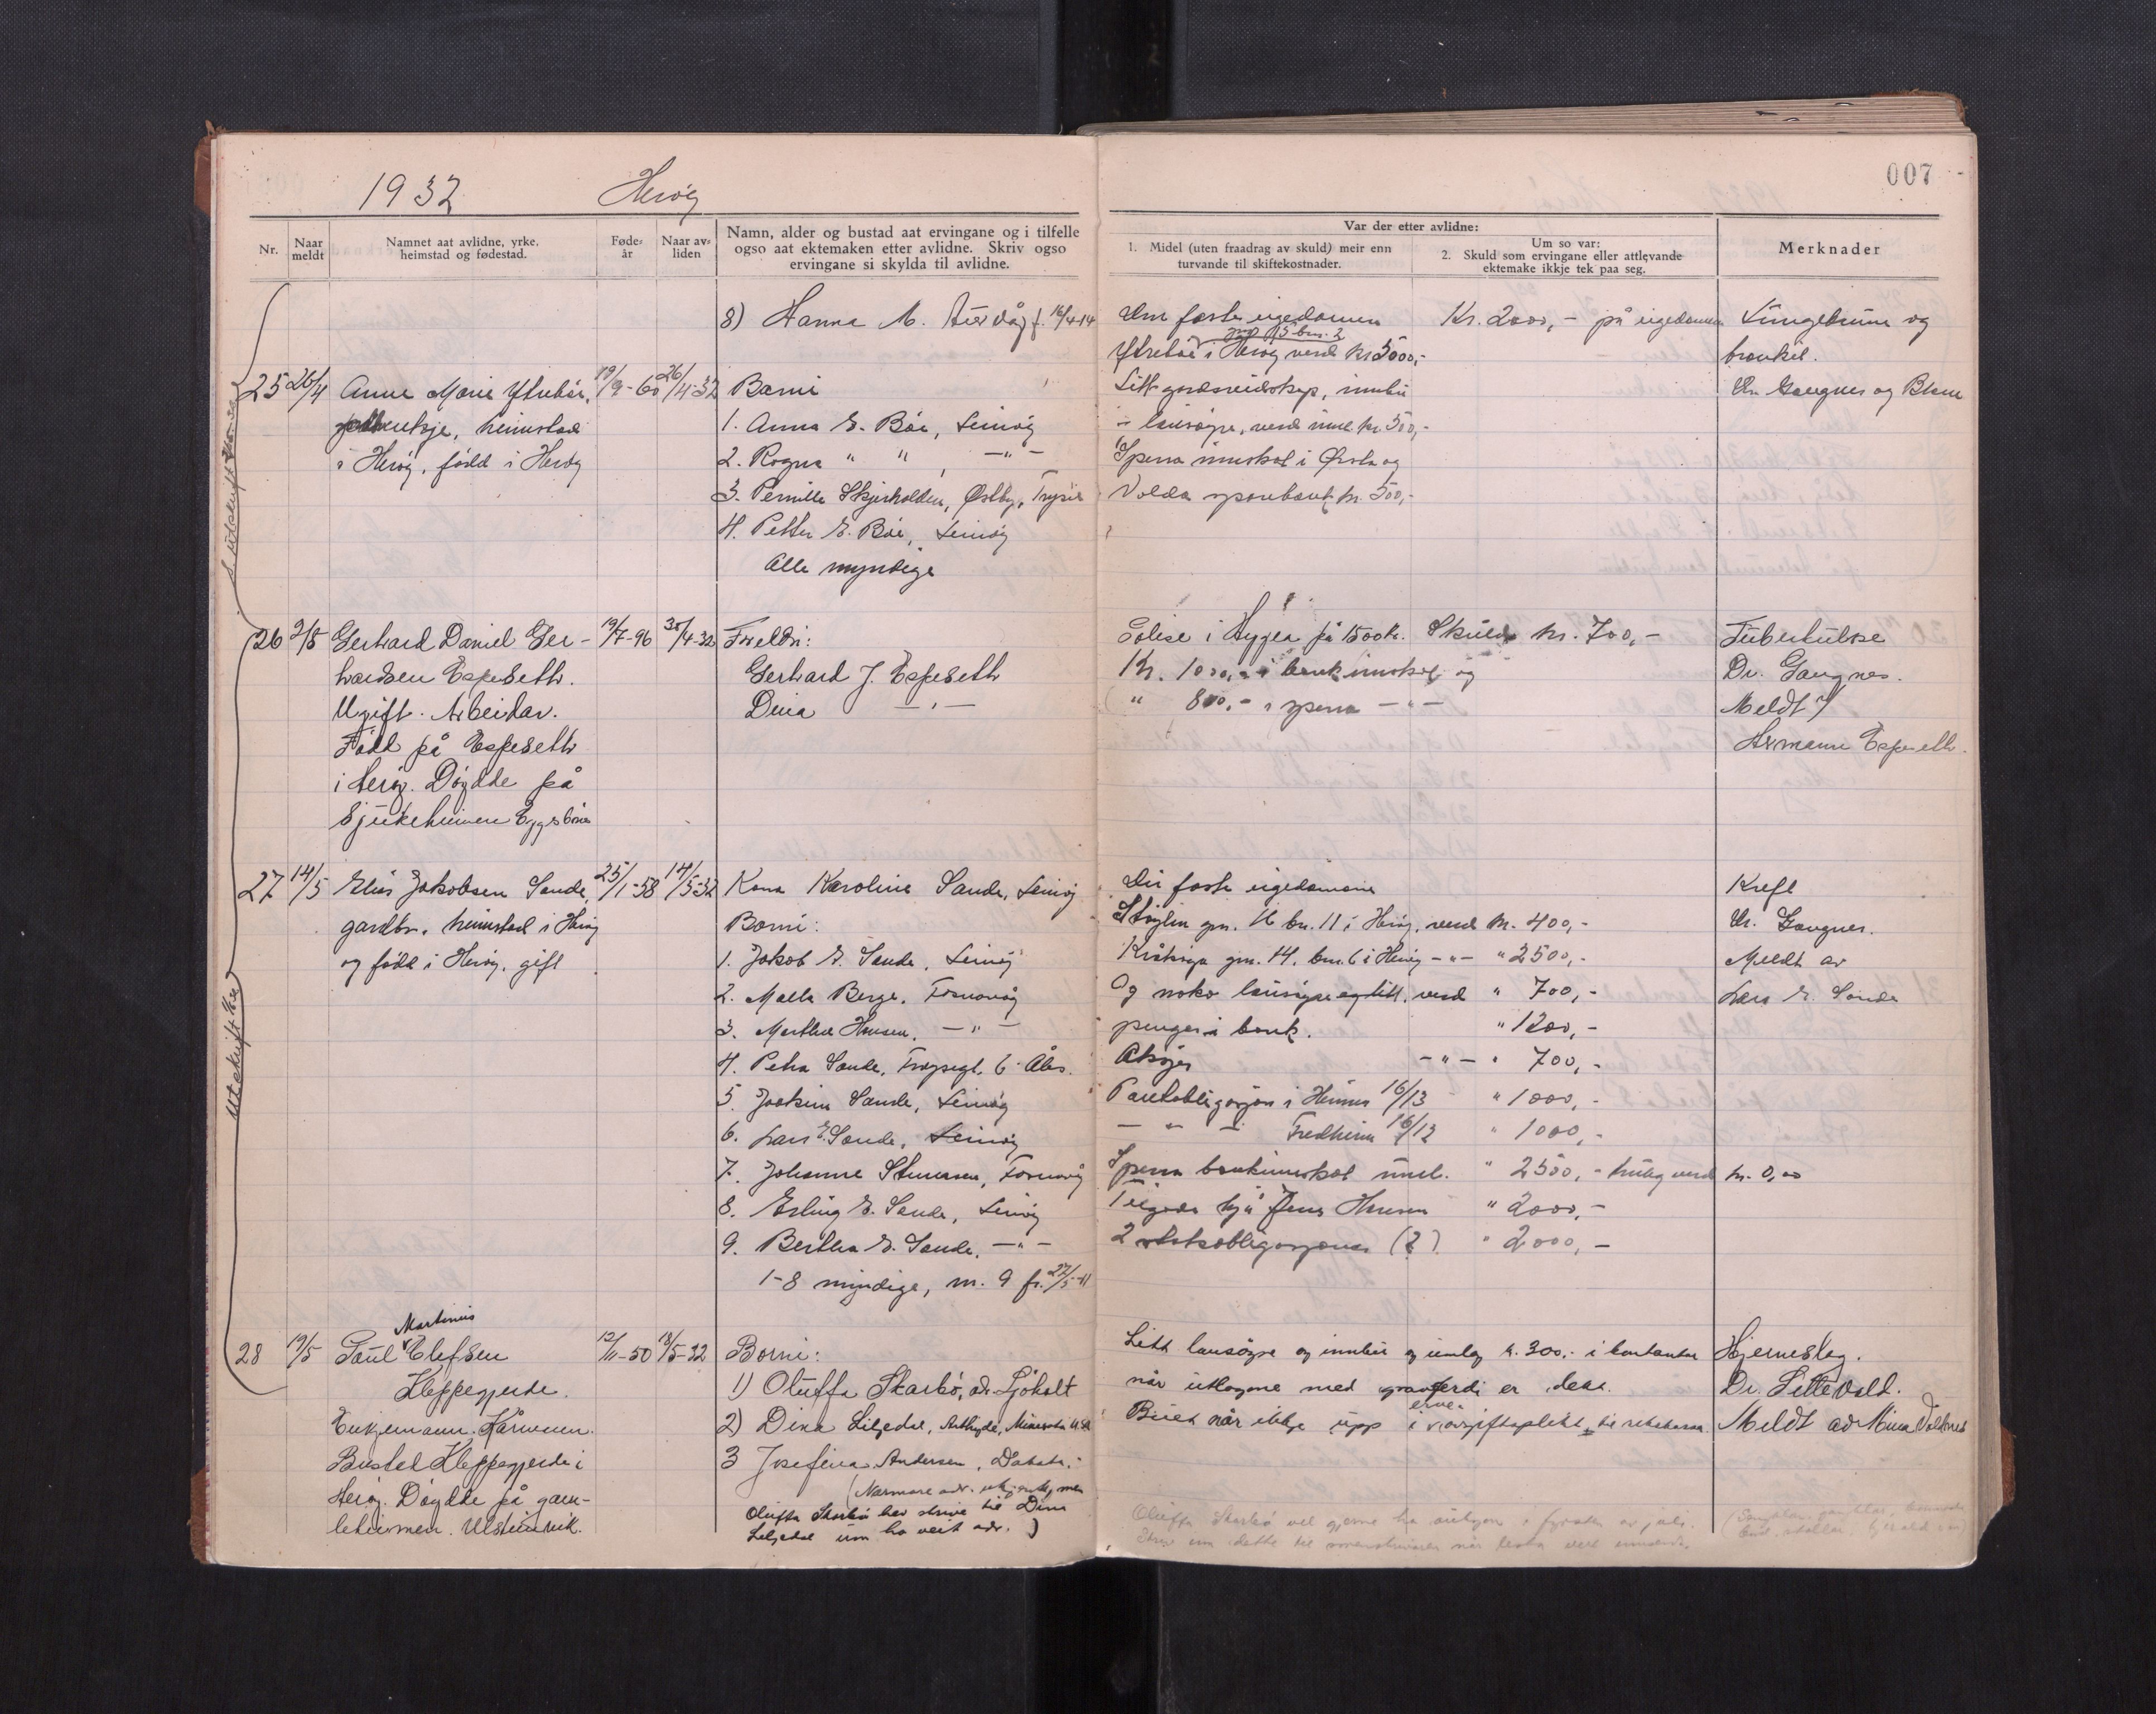 007
1932 Herøy
Nr.
Naar meldt
Namnet aat avlidne, yrke, heimstad og fødestad.
Føde- år
Naar av- liden
Namn, alder og bustad aat ervingane og i tilfelle
ogso aat ektemaken etter avlidne. Skriv ogso
ervingane si skylda til avlidne.
Var der etter avlidne:
1. Midel (uten fraadrag av skuld) meir enn
turvande til skiftekostnader.
Um so var:
2. Skuld som ervingane eller attlevande
ektemake ikkje tek paa seg.
Merknader
8) Hanna M. f. 16/4-14
25 26/4 Anne Marie Ytrebøe, 19/9-60 26/4-32
heimstad
i Herøy, fødd i Herøy
Borni
1. Anna E. Bøe, Leinøy
2. Ragna " " , -"-
3. Pernille Skjerholden, Østby, Trysil
4. Petter E. Bøe, Leinøy
Alle myndige
Den faste eigedomen
gn 15 bn. 2
Ytrebøe i Herøy verd kr 5000,-
Litt gardsreidskap, innbu
- lausøyre, verd uml. kr. 500,-
Sperra innskot i Ørsta og
Volda sparebank kr. 500,-
Kr. 2000,- på eigedomen
Lungebetennelse og
bronkit.
Dr. Gangnes og
26 2/5 Gerhard Daniel Ger- 19/7-96 30/4-32
hardsen Espeseth.
Ugift. Arbeidar.
Fødd på Espeseth
i Herøy. Døydde på
Sjukeheimen Eggesbønes
Foreldri:
Gerhard J. Espeseth
Dina -"-
Polise i Hygea på 1500 kr. Skuld kr. 700,-
Kr. 1000,- i bankinnskot og
" 800,- i sperra -"-
Tuberkulose
Dr. Gangnes.
Meldt af
Hermann Espeseth.
27 14/5 Elias Jakobsen Sande, 25/1-58 14/5-32
gardbr. heimstad i Herøy
og fødd i Herøy, gift
Kona Karoline Sande, Leinøy
Borni:
1. Jakob E. Sande, Leinøy
2. Malla Berge, Fosnavåg
3. Marthe Hansen, -"-
4. Petra Sande, 6 Åles.
5. Joakim Sande, Leinøy
6. Lars E. Sande, Leinøy
7. Johanne Stenersen, Fosnavåg
8. Erling E. Sande, Leinøy
9. Bertha E. Sande, -"-
1-8 myndige, nr. 9 f. 27/5-11
Dei faste eigedomane
Støylin gn. 16 bn. 11 i Herøy, verd kr. 400,-
gn. 14, bn. 6 i Herøy -"- " 2500,-
Og noko lausøyre og litt, verd " 700,-
pengar i bank. " 1200,-
Aksjer -"- " 700,-
Panteobligasjon i Heimen 16/13 " 1000,-
- " - Fredheim 16/12 " 1000,-
Sperra bankinnskot uml. " 2500,- truleg verd kr. 0,00
Tilgode hjå Jens Hansen " 2000,-
2 statsobligasjonar (?) " 2000,-
Kreft
Dr. Gangnes.
Meldt av
Lars E. Sande
Martinus
28 19/5 Paul Elefsen 12/11-50 18/5-32
Kleppegjerde.
Enkjemann. Kårmann.
Bustad Kleppegjerde i
Herøy. Døydde på gam-
leheimen. Ulsteinvik.
Borni:
1) Oluffa Skarbø, adr. Sjøholt
2) Dina Liljedal, Minesota U.S.A.
3 Josefina Andersen, Dakota,
(Nærmare adr. ukjent, men
Oluffa Skarbø har skrive til Dina
Liljedal um ho veit adr.)
Litt lausøyre og innbu og umlag kr. 300,- i kontantar
når utlogone med gravferdi er dekt.
Buet når ikkje upp i arveavgiftsplikt til statskassa
Hjerneslag.
Dr. Sættevold.
Meldt av Mina
Oluffa Skarbø vil gjerne ha
dette til sorenskrivaren når